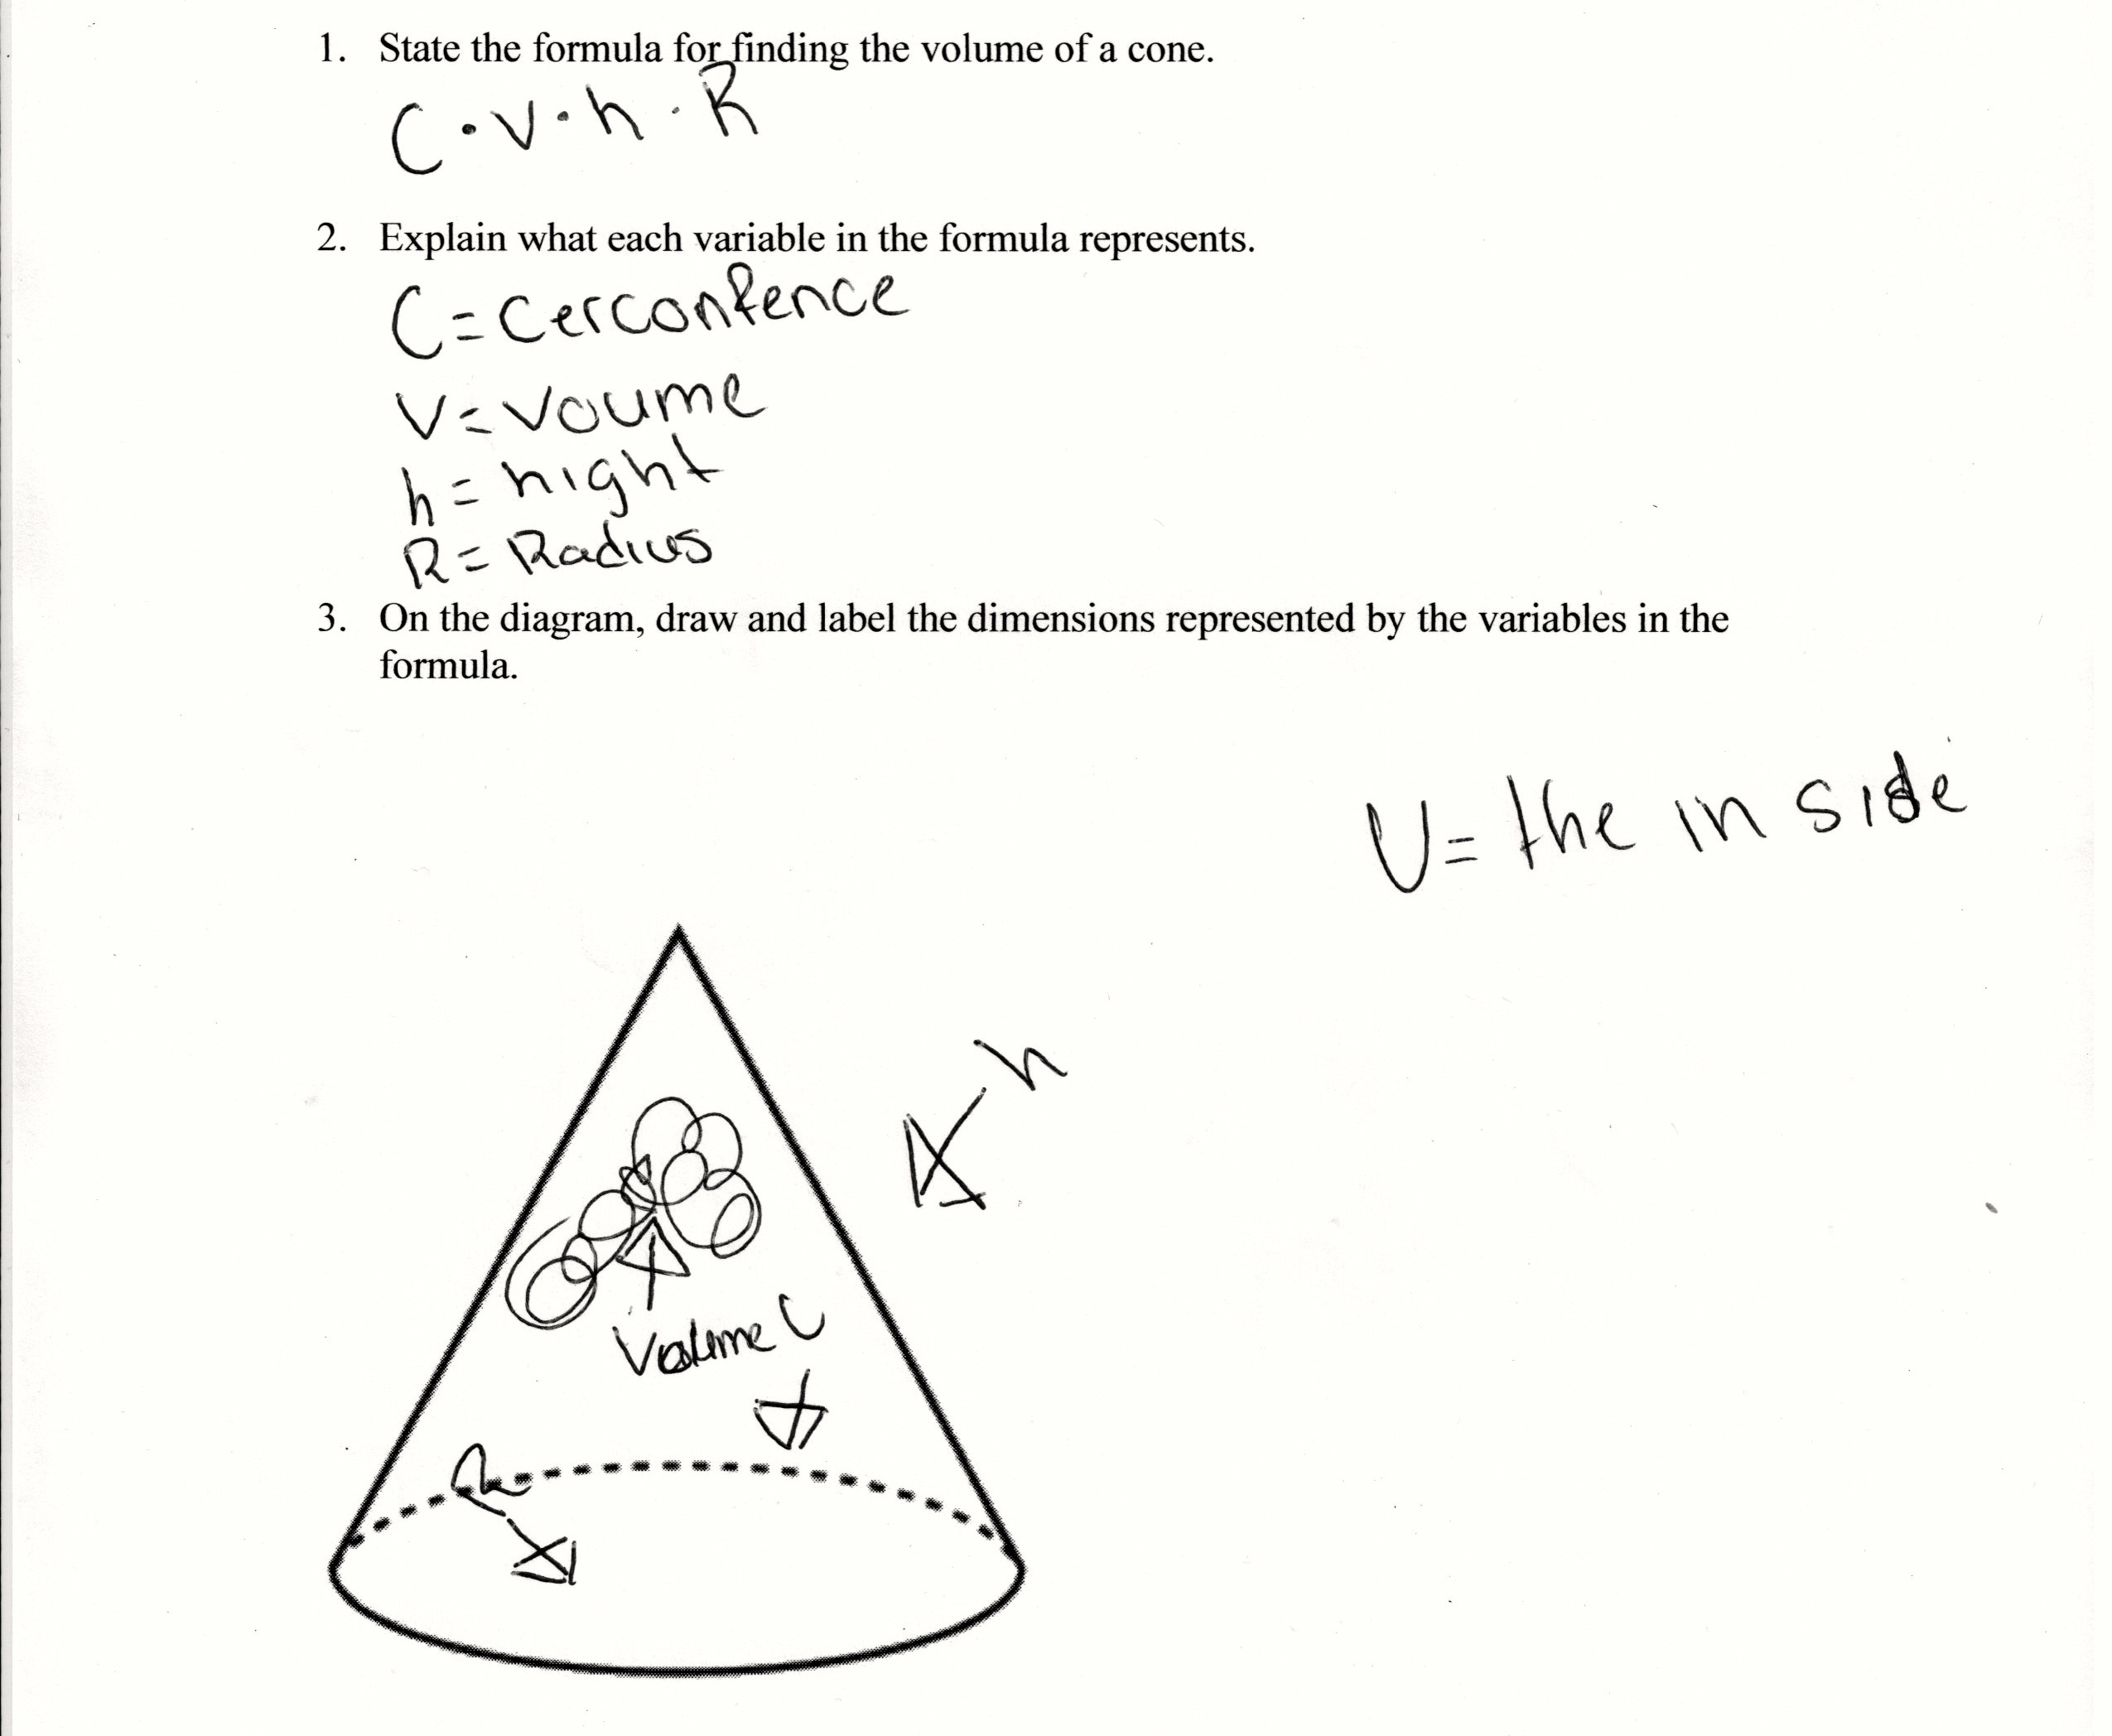 1. State the formula for finding the volume of a cone.
C · V · h · R
2. Explain what each variable in the formula represents.
C = Cerconfence
V = Voume
h = hight
R = Radius
3. On the diagram, draw and label the dimensions represented by the variables in the
formula.
V = the in side
h
Volume C
R